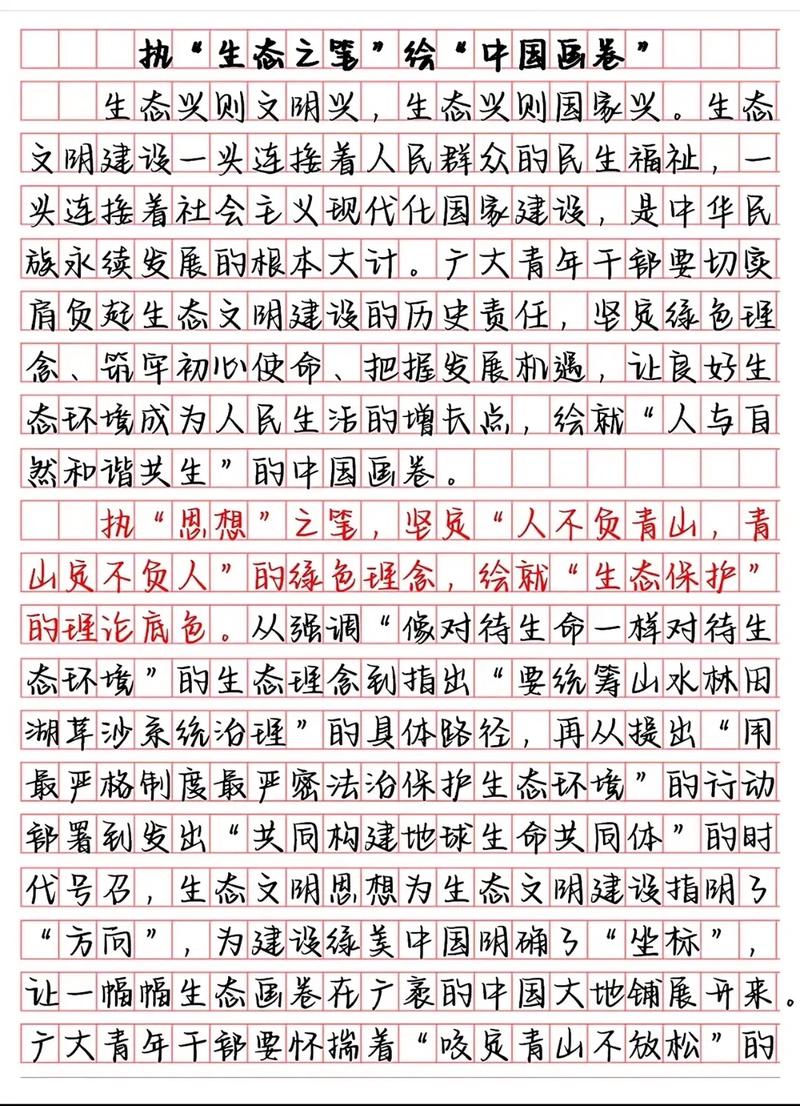 执“生态之笔”绘“中国画卷”
生态兴则文明兴，生态兴则国家兴。生态
文明建设一头连接着人民群众的民生福祉，一
头连接着社会主义现代化国家建设，是中华民
族永续发展的根本大计。广大青年干部要切实
肩负起生态文明建设的历史责任，坚定绿色理
念、筑牢初心使命、把握发展机遇，让良好生
态环境成为人民生活的增长点，绘就“人与自
然和谐共生”的中国画卷。
执“思想”之笔，坚定“人不负青山，青
山定不负人”的绿色理念，绘就“生态保护”
的理论底色。从强调“像对待生命一样对待生
态环境”的生态理念到指出“要统筹山水林田
湖草沙系统治理”的具体路径，再从提出“用
最严格制度最严密法治保护生态环境”的行动
部署到发出“共同构建地球生命共同体”的时
代号召，生态文明思想为生态文明建设指明了
“方向”，为建设绿美中国明确了“坐标”，
让一幅幅生态画卷在广袤的中国大地铺展开来。
广大青年干部要怀揣着“咬定青山不放松”的